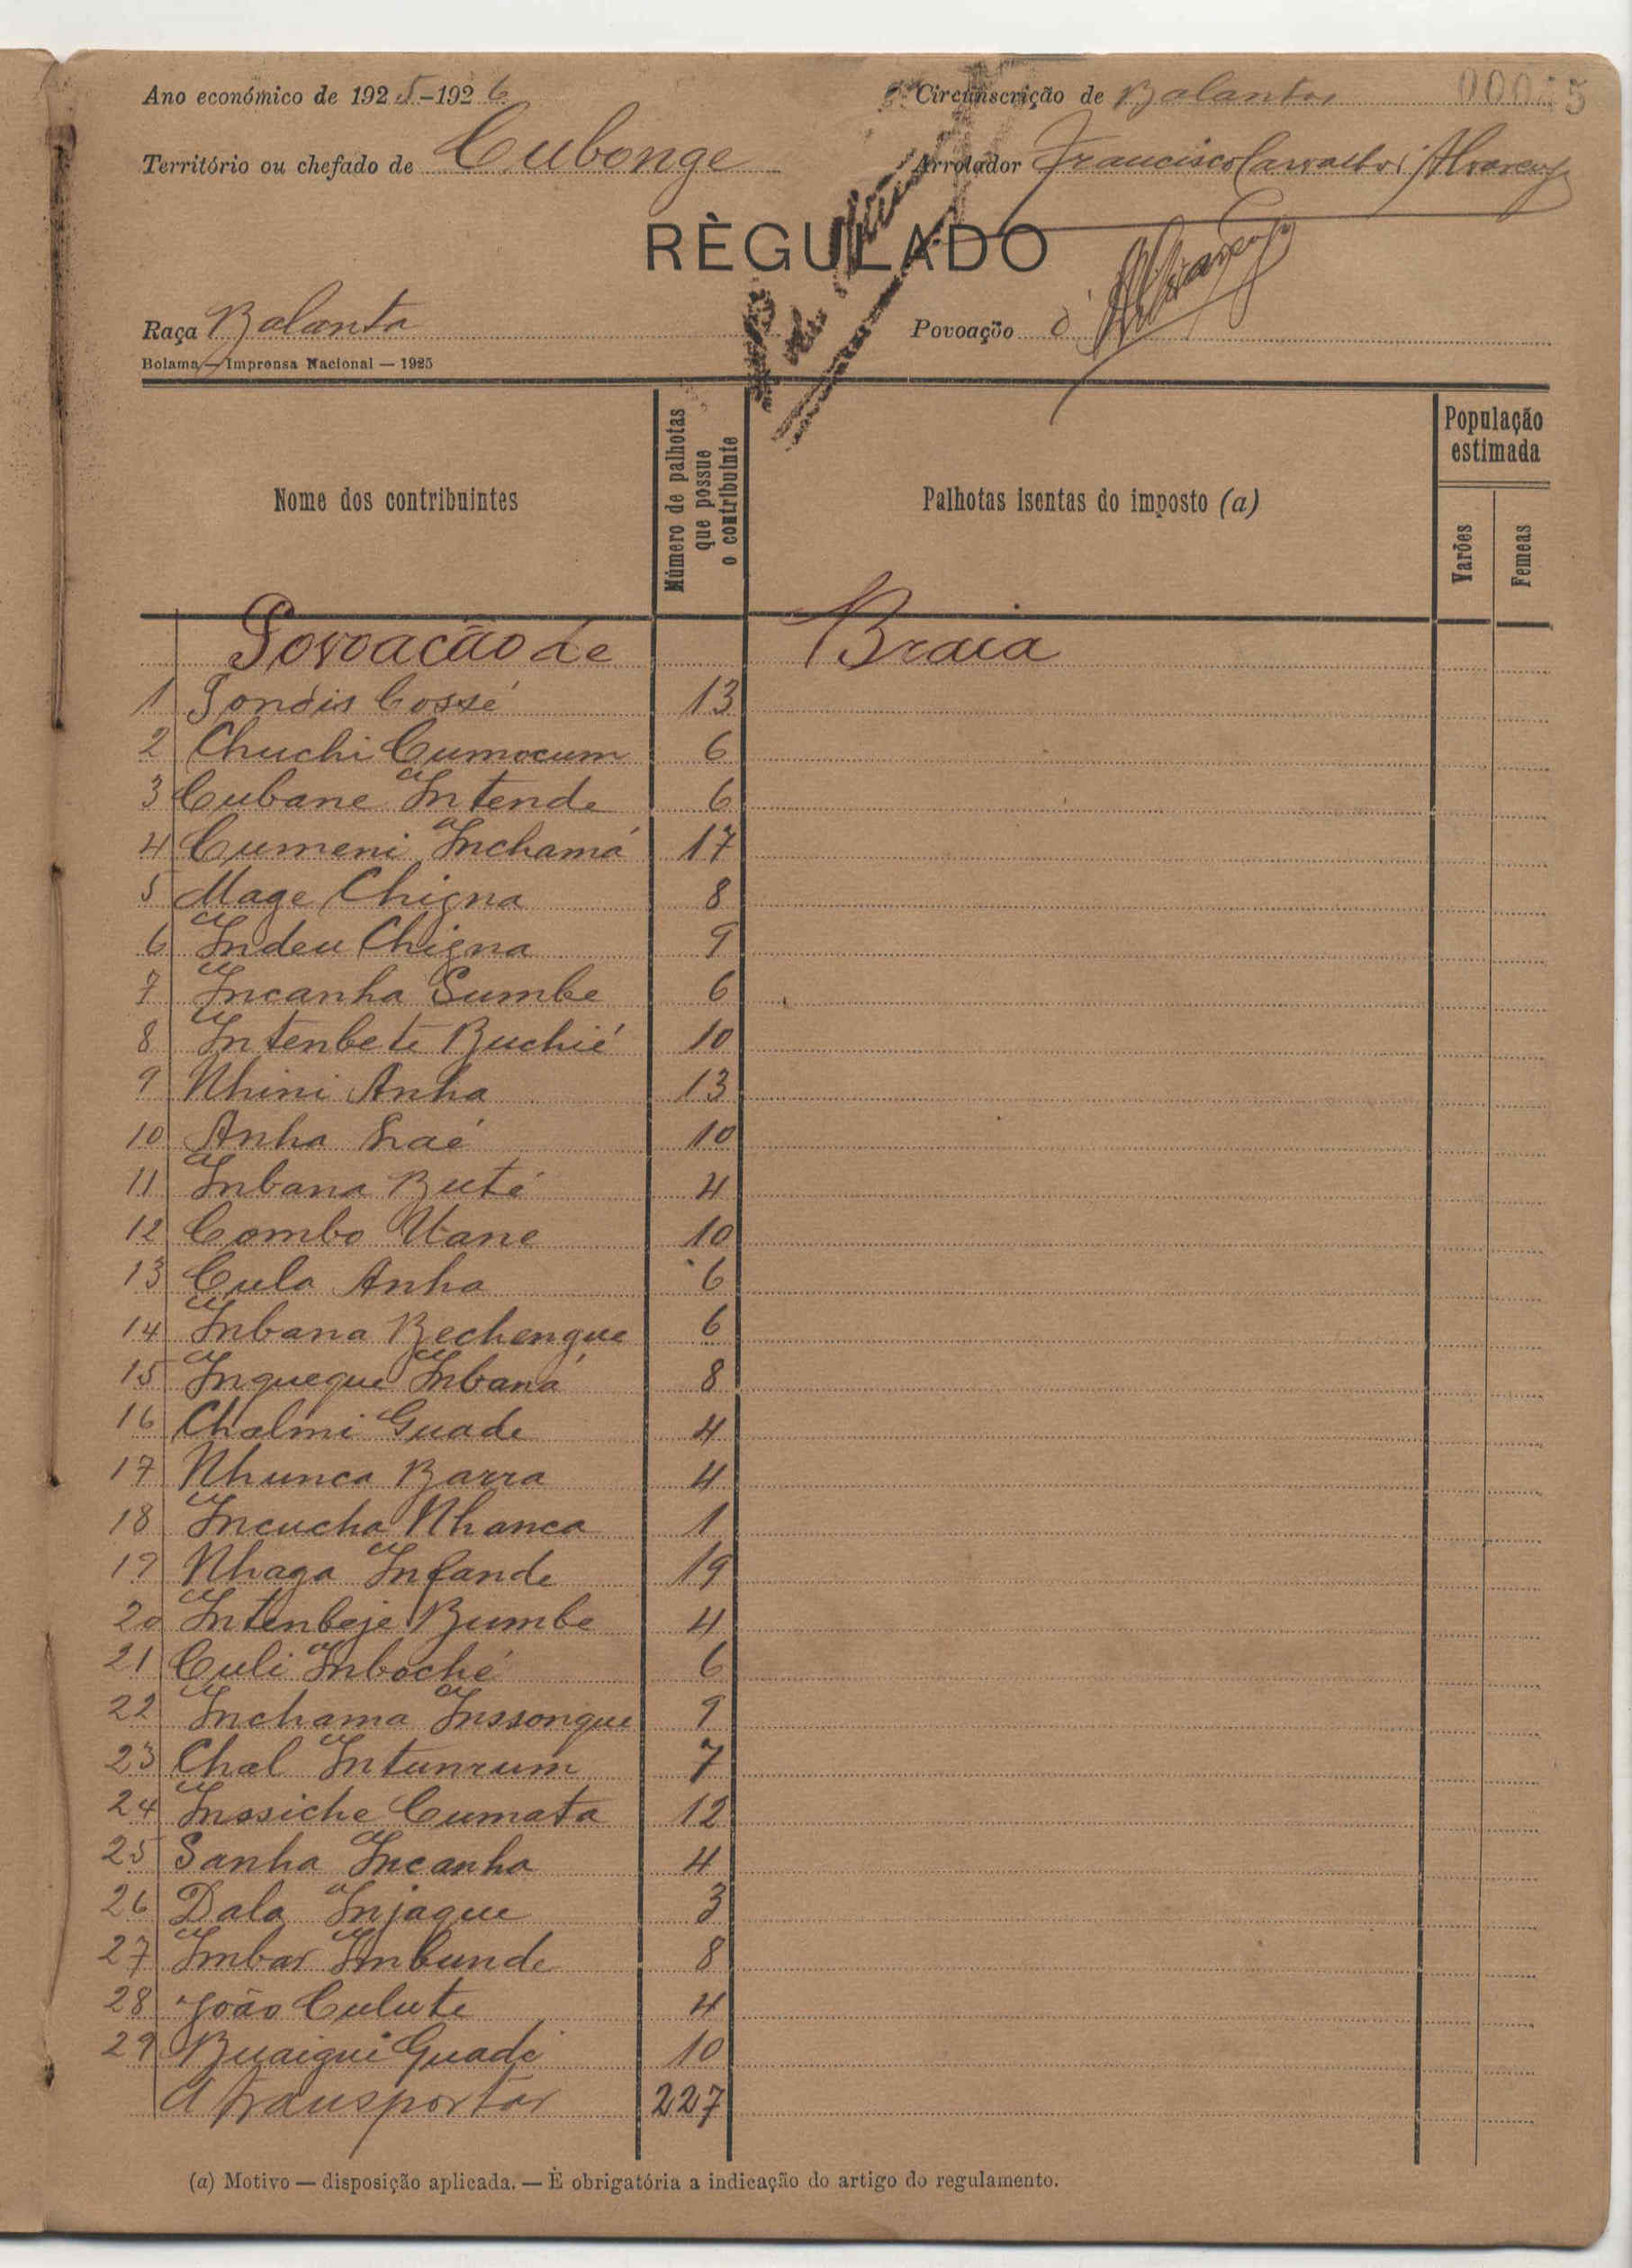 Ano económico de 1925-1926
Circunscrição de Balantas
Território ou chefado de Cubonge
Arrolador Francisco Carvalho Alvarenga
RÈGULADO
Raça Balanta
Povoação
Bolama — Imprensa Nacional — 1925
Nome dos contribuintes
Número de palhotas que possue o contribuinte
Palhotas isentas do imposto (a)
População estimada
Varões
Femeas
Povoacão de Braia
1 Tondis Cossé 13
2 Chuchi Cumocum 6
3 Cubane Intende 6
4 Cumeni Inchamá 17
5 Mage Chigna 8
6 Indeu Chigna 9
7 Incanha Sumbe 6
8 Intenbete Buchié 10
9 Nhini Anha 13
10 Anha 10
11 Inbana Buté 4
12 Combo Utane 10
13 Cula Anha 6
14 Inbana Bechengue 6
15 Inqueque Inbaná 8
16 Chalmi Guade 4
17 Nhunca Barra 4
18 Incucha Nhanca 1
19 Nhaga Infande 19
20 Intenbeje Bumbe 4
21 Culi Inboché 6
22 Inchama Inssongue 9
23 Chal Intunrum 7
24 Inssiche Cumata 12
25 Sanha Incanha 4
26 Dala Injaque 3
27 Imbar Imbunde 8
28 João Culute 4
29 Buaigui Guade 10
A transportar 227
(a) Motivo — disposição aplicada. — È obrigatória a indicação do artigo do regulamento.